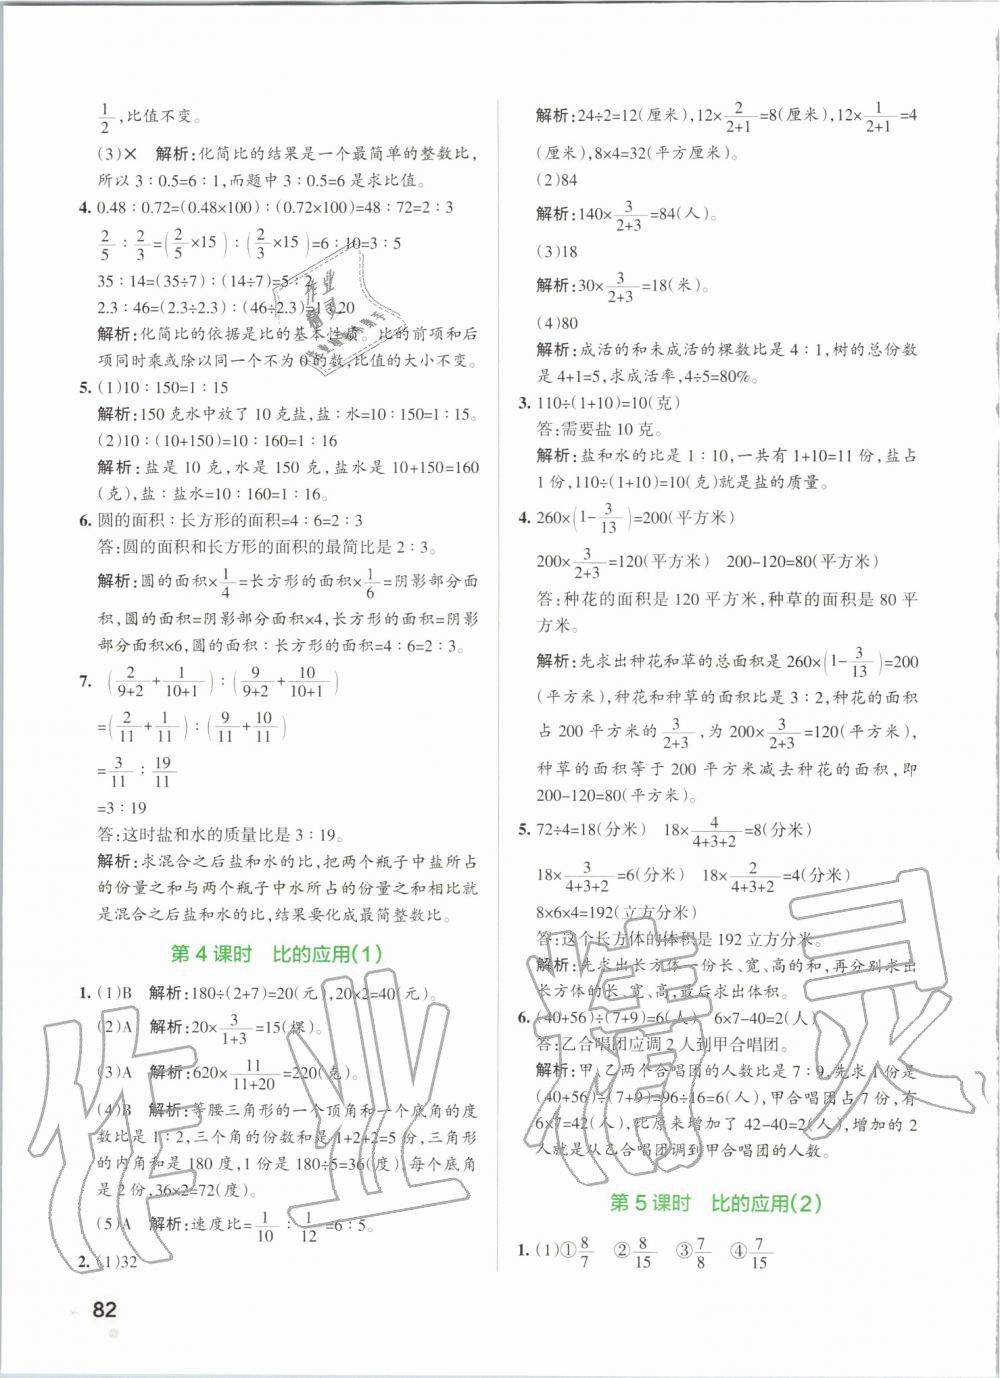 1/2,比值不变。
(3)× 解析:化简比的结果是一个最简单的整数比,
所以 3∶0.5=6∶1,而题中 3∶0.5=6 是求比值。
4. 0.48∶0.72=(0.48×100)∶(0.72×100)=48∶72=2∶3
2/5∶2/3=(2/5×15)∶(2/3×15)=6∶10=3∶5
35∶14=(35÷7)∶(14÷7)=5∶2
2.3∶46=(2.3÷2.3)∶(46÷2.3)=1∶20
解析:化简比的依据是比的基本性质。比的前项和后
项同时乘或除以同一个不为 0 的数,比值的大小不变。
5. (1)10∶150=1∶15
解析:150 克水中放了 10 克盐,盐∶水=10∶150=1∶15。
(2)10∶(10+150)=10∶160=1∶16
解析:盐是 10 克,水是 150 克,盐水是 10+150=160
(克),盐∶盐水=10∶160=1∶16。
6. 圆的面积∶长方形的面积=4∶6=2∶3
答:圆的面积和长方形的面积的最简比是 2∶3。
解析:圆的面积×1/4=长方形的面积×1/6=阴影部分面
积,圆的面积=阴影部分面积×4,长方形的面积=阴影
部分面积×6,圆的面积∶长方形的面积=4∶6=2∶3。
7. (2/(9+2)+1/(10+1))∶(9/(9+2)+10/(10+1))
=(2/11+1/11)∶(9/11+10/11)
=3/11∶19/11
=3∶19
答:这时盐和水的质量比是 3∶19。
解析:求混合之后盐和水的比,把两个瓶子中盐所占
的份量之和与两个瓶子中水所占的份量之和相比,就
是混合之后盐和水的比,结果要化成最简整数比。
第 4 课时 比的应用(1)
1. (1)B 解析:180÷(2+7)=20(元),20×2=40(元)。
(2)A 解析:20×3/(1+3)=15(棵)。
(3)A 解析:620×11/(11+20)=220(克)。
(4)B 解析:等腰三角形的一个顶角和一个底角的度
数比是 1∶2,三个角的份数和是 1+2+2=5 份,三角形
的内角和是 180 度,1 份是 180÷5=36(度),每个底角
是 2 份,36×2=72(度)。
(5)A 解析:速度比=1/10∶1/12=6∶5。
2. (1)32
82
解析:24÷2=12(厘米),12×2/(2+1)=8(厘米),12×1/(2+1)=4
(厘米),8×4=32(平方厘米)。
(2)84
解析:140×3/(2+3)=84(人)。
(3)18
解析:30×3/(2+3)=18(米)。
(4)80
解析:成活的和未成活的棵数比是 4∶1,树的总份数
是 4+1=5,求成活率,4÷5=80%。
3. 110÷(1+10)=10(克)
答:需要盐 10 克。
解析:盐和水的比是 1∶10,一共有 1+10=11 份,盐占
1 份,110÷(1+10)=10(克)就是盐的质量。
4. 260×(1-3/13)=200(平方米)
200×3/(2+3)=120(平方米) 200-120=80(平方米)
答:种花的面积是 120 平方米,种草的面积是 80 平
方米。
解析:先求出种花和草的总面积是 260×(1-3/13)=200
(平方米),种花和种草的面积比是 3∶2,种花的面积
占 200 平方米的 3/(2+3),为 200×3/(2+3)=120(平方米),
种草的面积等于 200 平方米减去种花的面积,即
200-120=80(平方米)。
5. 72÷4=18(分米) 18×4/(4+3+2)=8(分米)
18×3/(4+3+2)=6(分米) 18×2/(4+3+2)=4(分米)
8×6×4=192(立方分米)
答:这个长方体的体积是 192 立方分米。
解析:先求出长方体一份长、宽、高的和,再分别求出
长方体的长、宽、高,最后求出体积。
6. (40+56)÷(7+9)=6(人) 6×7-40=2(人)
答:乙合唱团应调 2 人到甲合唱团。
解析:甲、乙两个合唱团的人数比是 7∶9,先求 1 份是
(40+56)÷(7+9)=96÷16=6(人),甲合唱团占 7 份,有
6×7=42(人),比原来增加了 42-40=2(人),增加的 2
人就是从乙合唱团调到甲合唱团的人数。
第 5 课时 比的应用(2)
1. (1)①8/7 ②8/15 ③7/8 ④7/15
作业精灵
作业
精灵